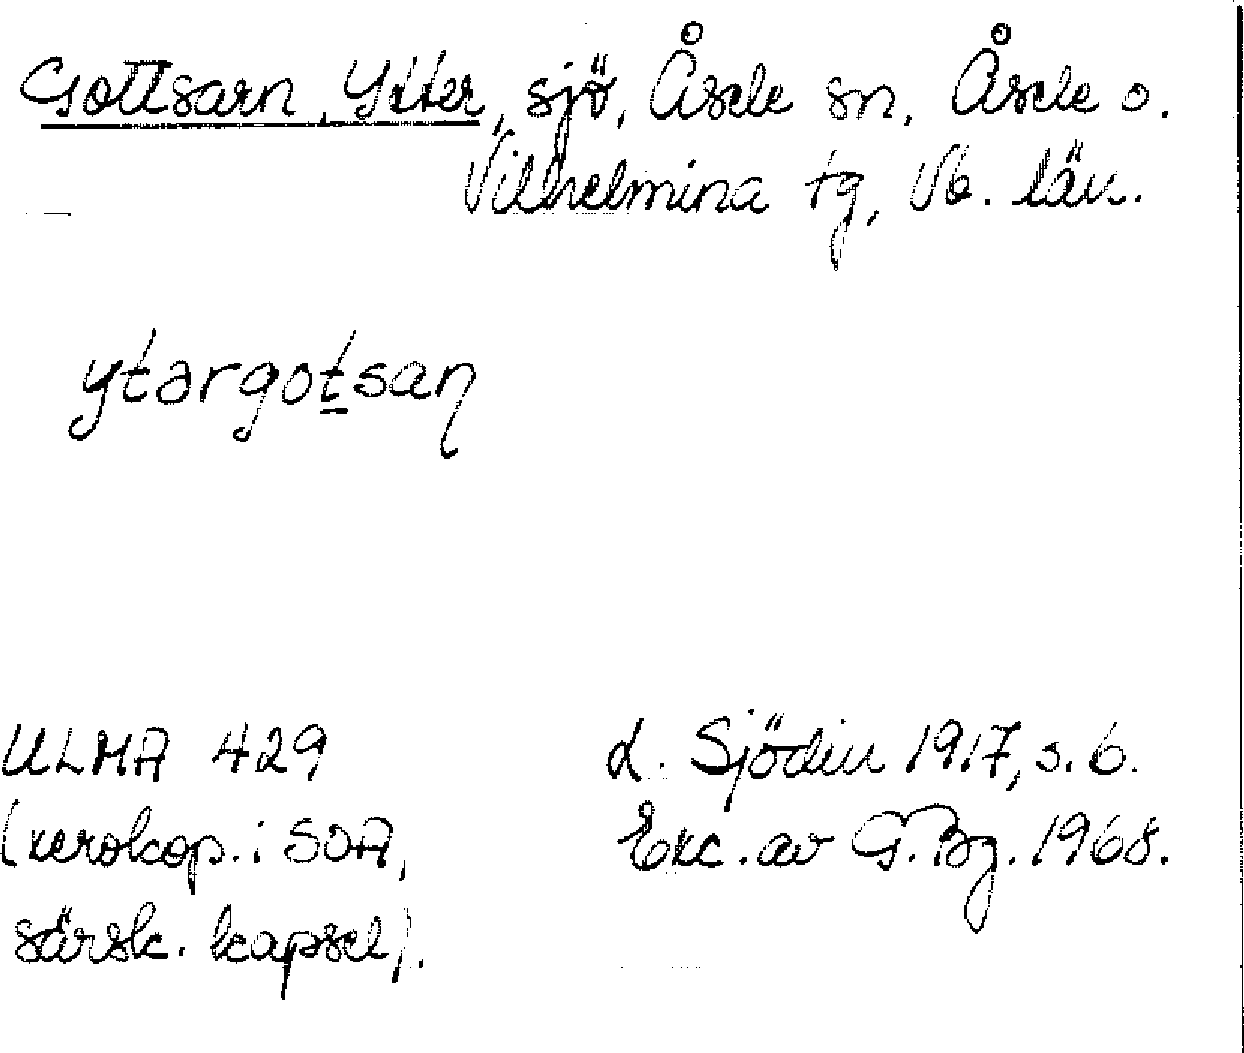 Gottsarn, Ytter, sjö, Åsele sn, Åsele o.
Vilhelmina tg, Vb. län.
ytərgot̲saɳ
ULMA 429
(xerokop. i SOA,
särsk. kapsel).
L. Sjödin 1917, s. 6.
Exc. av G. Bg. 1968.